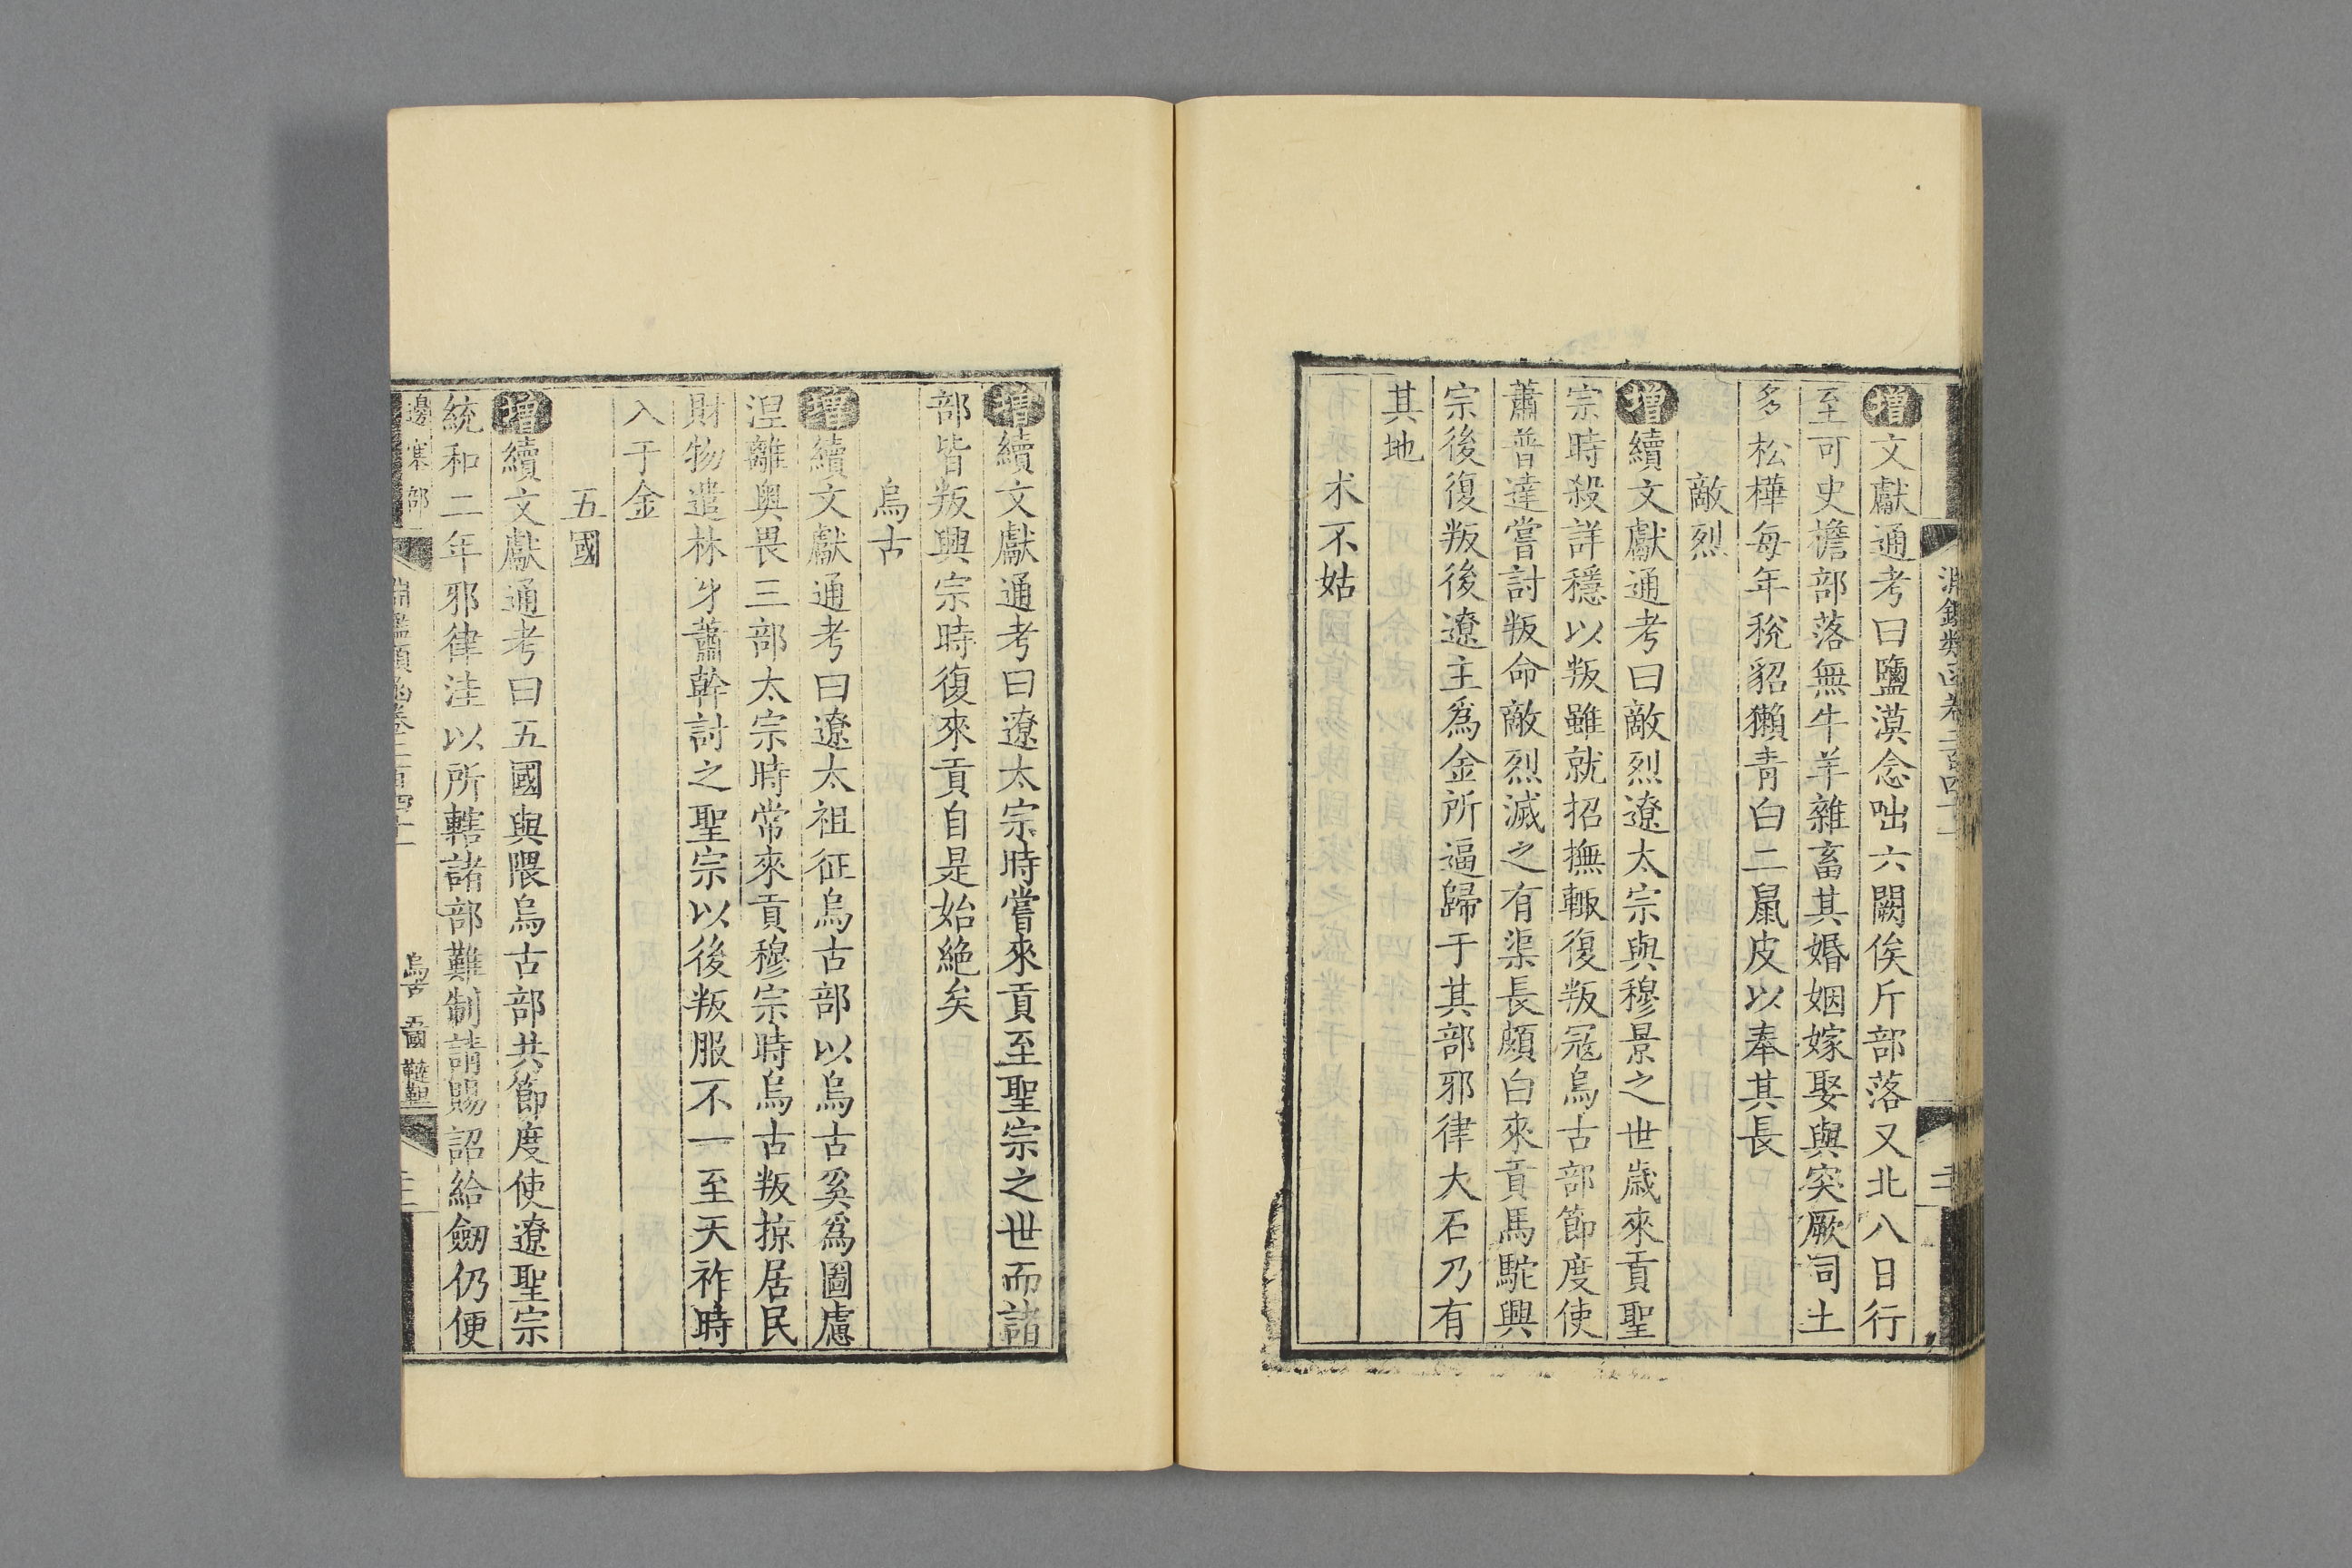 增文獻通考曰鹽漠念咄六闕俟斤部落又北八日行
至可史檐部落無牛羊雜畜其婚姻嫁娶與突厥同土
多松樺每年稅貂獺青白二鼠皮以奉其長
敵烈
增續文獻通考曰敵烈遼太宗與穆景之世歲來貢聖
宗時殺詳穩以叛雖就招撫輒復叛冦烏古部節度使
蕭普達嘗討叛命敵烈滅之有渠長頗白來貢馬駝興
宗後復叛後遼主爲金所逼歸于其部邪律大石乃有
其地
朮不姑
增續文獻通考曰遼太宗時嘗來貢至聖宗之世而諸
部皆叛興宗時復來貢自是始絶矣
烏古
增續文獻通考曰遼太祖征烏古部以烏古奚爲圖慮
湼離奥畏三部太宗時常來貢穆宗時烏古叛掠居民
財物遣林牙蕭幹討之聖宗以後叛服不一至天祚時
入于金
五國
增續文獻通考曰五國與隈烏古部共節度使遼聖宗
統和二年邪律洼以所轄諸部難制請賜詔給劒仍便
邊塞部 淵鑑類函卷二百四十一 烏古 五國 韃靼